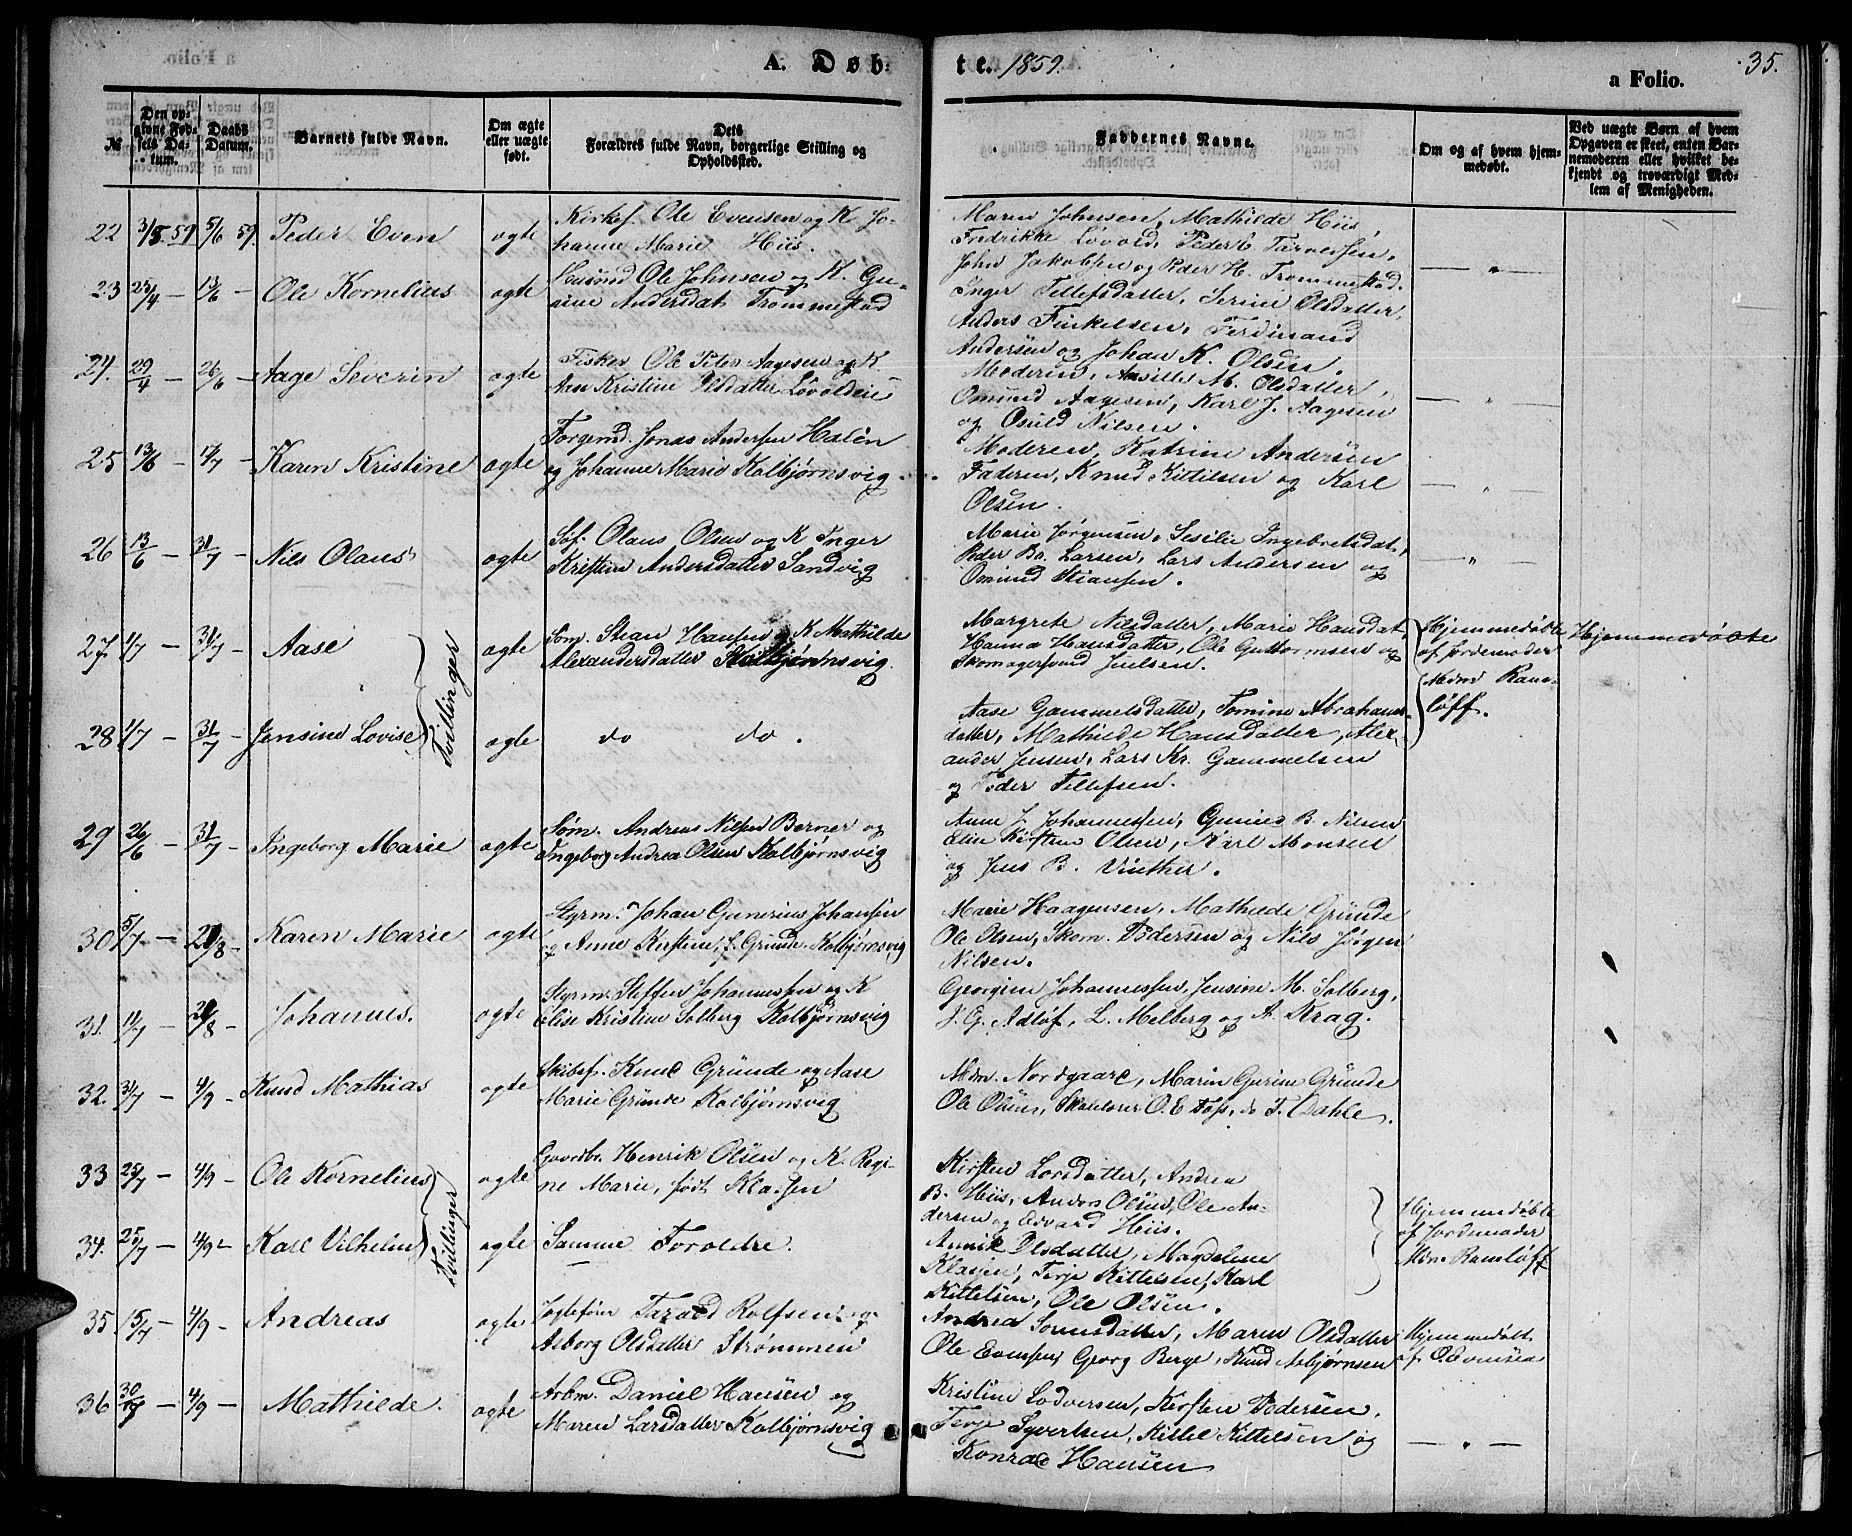 A. Døb-
te. 1859.
a Folio.
35.
№
Den op-
givne Fød-
sels Da-
tum.
Daabs
Datum.
Barnets fulde Navn.
Om ægte
eller uægte
født.
Dets
Forældres fulde Navn, borgerlige Stilling og
Opholdssted.
Faddernes Navne.
Om og af hvem hjem-
medøbt.
Ved uægte Børn af hvem
Opgaven er skeet, enten Bar-
nemoderen eller hvilket be-
kjendt og troværdigt Med-
lem af Menigheden.
22 3/5. 59 5/6 59. Peder Even ægte Kirkes. Ole Evensen og K. Jo-
hanne Marie Hiis.
Maren Johnsen, Mathilde Hiis,
Fredrikke Løvold, Peder C. Tarvesen,
John Jakobsen og Peder H. Trommestad. — „ —
23 25/4 — 13/6 — Ole Kornelius ægte Husmd Ole Johnsen og K. Gu-
nine Andersdat. Trommestad
Inger Tellefsdatter, Serine Olsdatter,
Anders Finkelsen, Ferdinand
Andersen og Johan K. Olsen.
24. 29/4 — 26/6 — Aage Severin ægte Fisker Ole Peter Aagesen og K
Ann Kristine Olsdatter Løvoldeie
Moderen, M. Olsdatter,
Omund Aagesen, Karl J. Aagesen
og Osuld Nilsen. — „ —
25 13/6 — 17/7 — Karen Kristine ægte Torgemd. Jonas Andersen Halén
og Johanne Marie Kolbjørnsvig.
Moderen, Katrine Andersen
Faderen, Knud Kittilsen og Karl
Olsen. — „ —
26 13/6 — 31/7 — Nils Olaus ægte Søf. Olaus Olsen og K Inger
Kristine Andersdatter Sandvig
Marie Jørgensen, Sesilie Ingebretsdat,
Peder Bo. Larsen, Lars Andersen og
Omund Stiansen. — „ —
27. 11/7 — 31/7 — Aase ægte Søm. Stian Hansen og K Mathilde
Alexandersdatter Kolbjørnsvig.
Margrete Nilsdatter, Marie Hansdat,
Hanna Hansdatter, Ole Guttormsen og
Skomagersvend Juelsen.
Hjemmedøbte
af Jordemoder
Mdm Rams-
løff.
Hjemmedøbte
Tvillinger
28 11/7 — 31/7 — Jensine Lovise ægte do do.
Aase Gammelsdatter, Tomine Abrahams-
datter, Mathilde Hansdatter, Alex-
ander Jensen, Lars Kr. Gammelsen
og Peder Tellefsen.
29 26/6 — 31/7 — Ingeborg Marie ægte Søm. Andreas Nilsen Berner og
Ingeborg Andrea Olsen Kolbjørnsvig
Anne J. Johannessen, Gunild B. Nilsen
Elen Kirstine Olsen, Karl Monsen
og Jens B. Vinther.
30 5/7 — 21/8 — Karen Marie ægte Styrm. Johan Gunerius Johansen
og Anne Kirstine, f. Grunde. Kolbjørnsvig
Marie Haagensen, Mathilde Gründe
Ole Olsen, Skom. Pedersen og Nils Jørgen
Nilsen.
31. 11/7 — 21/8 — Johannes. ægte Styrm. Steffen Johannessen og K
Elise Kristine Solberg Kolbjørnsvig
Georgine Johannessen, Jensine M. Solberg,
J. G. Adløf, L. Melberg og A. Krag.
32. 31/7 — 4/9 — Knud Mathias ægte Skibsf. Knud Gründe og Aase
Marie Gründe Kolbjørnsvig
Mdm. Nordgaard, Maren Gurine Gründe
Ole Olsen, Skolelærer O. E. Foss, do T. Dahle.
33 25/7 — 4/9 — Ole Kornelius ægte Gaardbr. Henrik Olsen og K. Regi-
ne Marie, født Klassen
Kirsten Larsdatter, Andrea
B. Hiis, Anders Olsen, Ole An-
dersen og Edvard Hiis.
Hjemmedøbte
af Jordemoder
Mdm. Ramsløff
Tvillinger
34. 25/7 — 4/9 — Karl Vilhelm ægte Samme Forældre.
Annik Olsdatter, Magdalene
Klasen, Terje Kittelsen, Karl
Kittelsen, Ole Olsen.
35. 15/7 — 4/9 — Andreas ægte Jagtefører Tarald Rolfsen og
Asborg Olsdatter Strømmen
Andrea Sørensdatter, Maren Olsdatter
Ole Evensen, Georg Berge, Knud Asbjørnsen
Hjemmedøbt
af O. Evensen
36. 30/7 — 4/9 — Mathilde. ægte Arbm. Daniel Hansen og
Maren Larsdatter Kolbjørnsvig
Kristine Lodversen, Kirsten Pedersen,
Terje Syvertsen, Kittel Kittelsen og
Konrad Hansen — „ —